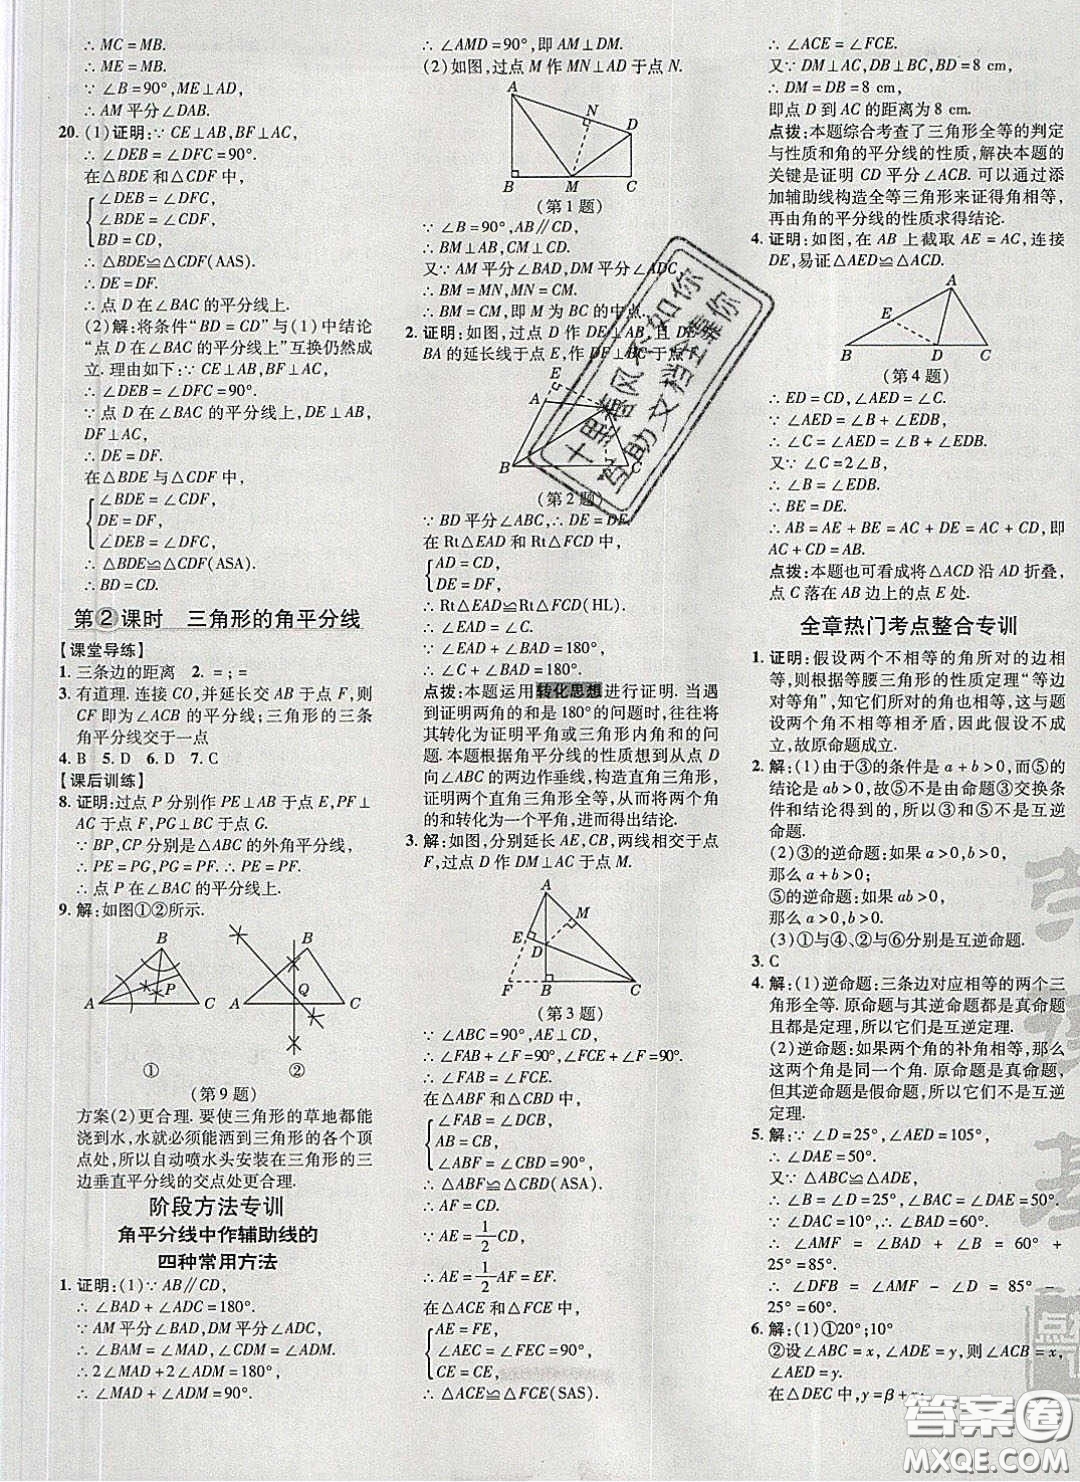 ∴ MC = MB.
∴ ME = MB.
又∵ ∠B = 90°, ME⊥AD,
∴ AM 平分∠DAB.
20. (1)证明:∵ CE⊥AB, BF⊥AC,
∴ ∠DEB = ∠DFC = 90°.
在△BDE 和△CDF 中,
∠DEB = ∠DFC,
∠BDE = ∠CDF,
BD = CD,
∴ △BDE≌△CDF(AAS).
∴ DE = DF.
∴ 点 D 在∠BAC 的平分线上.
(2)解:将条件“BD = CD”与(1)中结论
“点 D 在∠BAC 的平分线上”互换仍然成
立. 理由如下:∵ CE⊥AB, BF⊥AC,
∴ ∠DEB = ∠DFC = 90°.
∵ 点 D 在∠BAC 的平分线上, DE⊥AB,
DF⊥AC,
∴ DE = DF.
在△BDE 与△CDF 中,
∠BDE = ∠CDF,
DE = DF,
∠DEB = ∠DFC,
∴ △BDE≌△CDF(ASA).
∴ BD = CD.
第2课时 三角形的角平分线
【课堂导练】
1. 三条边的距离 2. = ; =
3. 有道理. 连接 CO,并延长交 AB 于点 F,则
CF 即为∠ACB 的平分线;三角形的三条
角平分线交于一点
4. B 5. D 6. D 7. C
【课后训练】
8. 证明:过点 P 分别作 PE⊥AB 于点 E, PF⊥
AC 于点 F, PG⊥BC 于点 G.
∵ BP, CP 分别是△ABC 的外角平分线,
∴ PE = PG, PG = PF. ∴ PE = PF.
∴ 点 P 在∠BAC 的平分线上.
9. 解:如图①②所示.
B
B
P
Q
A
C
A
C
①
②
(第 9 题)
方案(2)更合理. 要使三角形的草地都能
浇到水,水就必须能洒到三角形的各个顶
点处,所以自动喷水头安装在三角形的三
边垂直平分线的交点处更合理.
阶段方法专训
角平分线中作辅助线的
四种常用方法
1. 证明:(1)∵ AB∥CD,
∴ ∠BAD + ∠ADC = 180°.
∵ AM 平分∠BAD, DM 平分∠ADC,
∴ ∠BAM = ∠MAD, ∠ADM = ∠MDC.
∴ 2∠MAD + 2∠ADM = 180°.
∴ ∠MAD + ∠ADM = 90°.
∴ ∠AMD = 90°,即 AM⊥DM.
(2)如图,过点 M 作 MN⊥AD 于点 N.
A
N
D
B
M
C
(第 1 题)
∵ ∠B = 90°, AB∥CD,
∴ BM⊥AB, CM⊥CD.
又∵ AM 平分∠BAD, DM 平分∠ADC,
∴ BM = MN, MN = CM.
∴ BM = CM,即 M 为 BC 的中点.
2. 证明:如图,过点 D 作 DE⊥AB,且 DE 交
BA 的延长线于点 E,作 DF⊥BC 于点 F.
E
A
B
C
(第 2 题)
∵ BD 平分∠ABC, ∴ DE = DF.
在 Rt△EAD 和 Rt△FCD 中,
AD = CD,
DE = DF,
∴ Rt△EAD≌Rt△FCD(HL).
∴ ∠C = ∠EAD.
∵ ∠EAD + ∠BAD = 180°,
∴ ∠C + ∠BAD = 180°.
点拨:本题运用转化思想进行证明. 当遇
到证明两角的和是 180°的问题时,往往将
其转化为证明平角或三角形内角和的问
题. 本题根据角平分线的性质想到从点 D
向∠ABC 的两边作垂线,构造直角三角形,
证明两个直角三角形全等,从而将两个角
的和转化为一个平角,进而得出结论.
3. 解:如图,分别延长 AE, CB,两线相交于点
F,过点 D 作 DM⊥AC 于点 M.
A
M
E
D
F
B
C
(第 3 题)
∵ ∠ABC = 90°, AE⊥CD,
∴ ∠FCE + ∠F = 90°, ∠FAB + ∠F = 90°.
∴ ∠FAB = ∠DCB.
在△ABF 和△CBD 中,
∠FAB = ∠DCB,
AB = CB,
∠ABF = ∠CBD = 90°,
∴ △ABF≌△CBD(ASA).
∴ AF = CD.
∵ AE = 1/2 CD,
∴ AE = 1/2 AF = EF.
在△ACE 和△FCE 中,
AE = FE,
∠AEC = ∠FEC = 90°,
CE = CE,
∴ △ACE≌△FCE(SAS).
∴ ∠ACE = ∠FCE.
又∵ DM⊥AC, AB⊥BC, BD = 8 cm,
∴ DM = DB = 8 cm,
即点 D 到 AC 的距离为 8 cm.
点拨:本题综合考查了三角形全等的判定
与性质和角的平分线的性质,解决本题的
关键是证明 CD 平分∠ACB. 可以通过添
加辅助线构造全等三角形来证得角相等,
再由角的平分线的性质求得结论.
4. 证明:如图,在 AB 上截取 AE = AC,连接
DE,易证△AED≌△ACD.
A
E
B
D
C
(第 4 题)
∴ ED = CD, ∠AED = ∠C.
∵ ∠AED = ∠B + ∠EDB,
∴ ∠C = ∠AED = ∠B + ∠EDB.
又∵ ∠C = 2∠B,
∴ ∠B = ∠EDB.
∴ BE = DE.
∴ AB = AE + BE = AC + DE = AC + CD,即
AC + CD = AB.
点拨:本题也可看成将△ADC 沿 AD 折叠,
点 C 落在 AB 边上的点 E 处.
全章热门考点整合专训
1. 证明:假设两个不相等的角所对的边相
等,则根据等腰三角形的性质定理“等边
对等角”,知它们所对的角也相等,这与题
设两个角不相等相矛盾,因此假设不成
立,故原命题成立.
2. 解:(1)由于③的条件是 a + b > 0,而⑤的
结论是 ab > 0,故⑤不是由命题③交换条
件和结论得到的,所以③和⑤不是互逆
命题.
(2)③的逆命题:如果 a > 0, b > 0,
那么 a + b > 0;
⑤的逆命题:如果 ab > 0,
那么 a > 0, b > 0.
(3)①与④、②与⑥分别是互逆命题.
3. C
4. 解:(1)逆命题:三条边对应相等的两个三
角形全等. 原命题与其逆命题都是真命题
且都是定理,所以它们是互逆定理.
(2)逆命题:如果两个角的补角相等,那么
这两个角是同一个角. 原命题是真命题,
但其逆命题是假命题,所以它们不是互逆
定理.
5. 解:∵ ∠D = 25°, ∠AED = 105°,
∴ ∠DAE = 50°.
又∵ ∠DAC = 10°, ∴ ∠CAE = 60°.
∵ ∠B = ∠D = 25°, ∠BAC = ∠DAE = 50°,
∴ ∠BAD = 60°.
∴ ∠AMF = ∠BAD + ∠B = 60° +
25° = 85°.
∴ ∠DFB = ∠AMF − ∠D = 85° −
25° = 60°.
6. 解:(1)①20°;10°
②设∠ABC = x, ∠ADE = y,则∠ACB = x,
∠AED = y.
在△DEC 中, y = β + α;
十里春风不如你
百助文档全靠你
点
答案圈
MXQE.COM